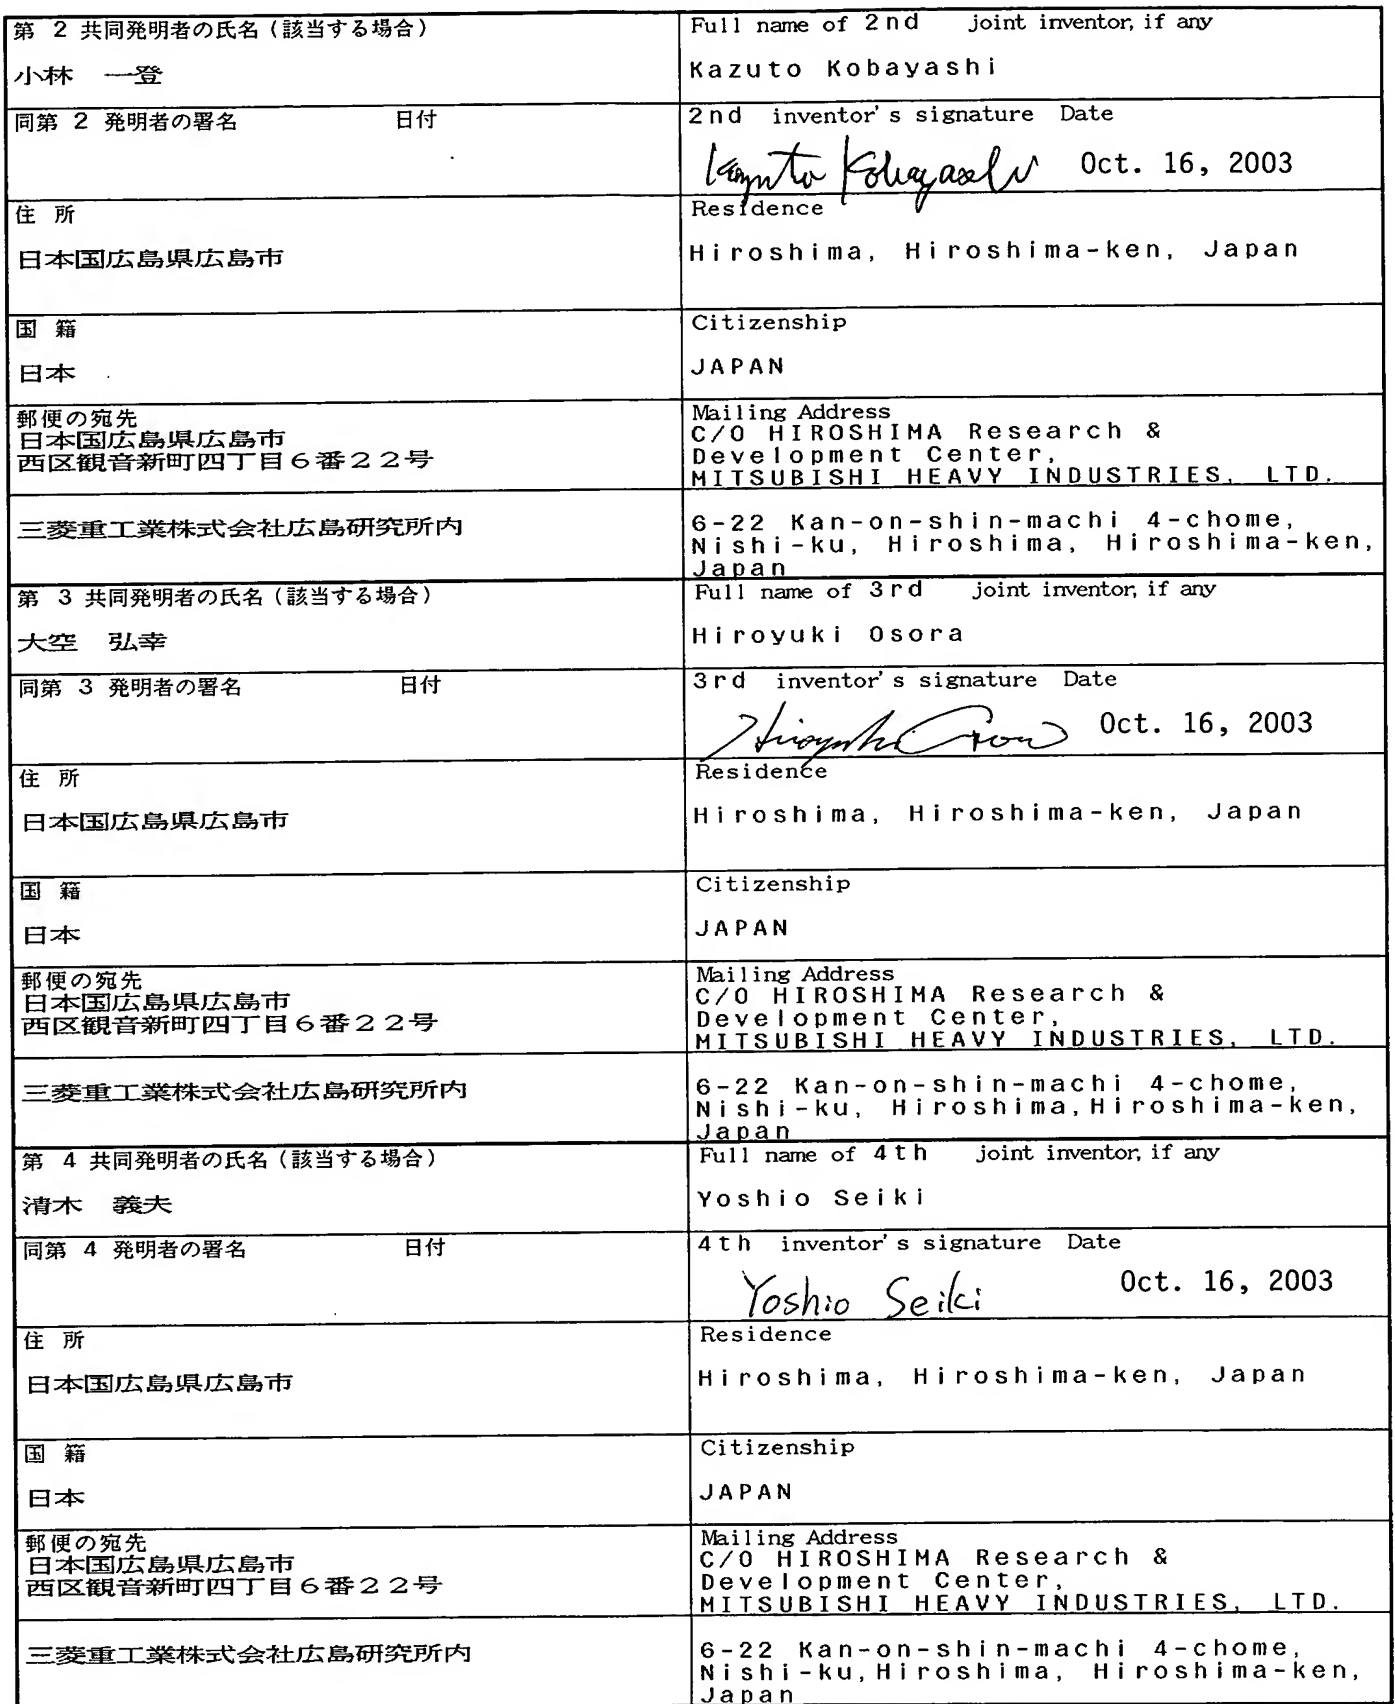 第 2 共同発明者の氏名（該当する場合）
小林　一登
Full name of 2nd joint inventor, if any
Kazuto Kobayashi
同第 2 発明者の署名 日付
2nd inventor's signature Date
Kazuto Kobayashi Oct. 16, 2003
住 所
日本国広島県広島市
Residence
Hiroshima, Hiroshima-ken, Japan
国 籍
日本
Citizenship
JAPAN
郵便の宛先
日本国広島県広島市
西区観音新町四丁目６番２２号
Mailing Address
C/O HIROSHIMA Research &
Development Center,
MITSUBISHI HEAVY INDUSTRIES, LTD.
三菱重工業株式会社広島研究所内
6-22 Kan-on-shin-machi 4-chome,
Nishi-ku, Hiroshima, Hiroshima-ken,
Japan
第 3 共同発明者の氏名（該当する場合）
大空　弘幸
Full name of 3rd joint inventor, if any
Hiroyuki Osora
同第 3 発明者の署名 日付
3rd inventor's signature Date
Hiroyuki Osora Oct. 16, 2003
住 所
日本国広島県広島市
Residence
Hiroshima, Hiroshima-ken, Japan
国 籍
日本
Citizenship
JAPAN
郵便の宛先
日本国広島県広島市
西区観音新町四丁目６番２２号
Mailing Address
C/O HIROSHIMA Research &
Development Center,
MITSUBISHI HEAVY INDUSTRIES, LTD.
三菱重工業株式会社広島研究所内
6-22 Kan-on-shin-machi 4-chome,
Nishi-ku, Hiroshima,Hiroshima-ken,
Japan
第 4 共同発明者の氏名（該当する場合）
清木　義夫
Full name of 4th joint inventor, if any
Yoshio Seiki
同第 4 発明者の署名 日付
4th inventor's signature Date
Yoshio Seiki Oct. 16, 2003
住 所
日本国広島県広島市
Residence
Hiroshima, Hiroshima-ken, Japan
国 籍
日本
Citizenship
JAPAN
郵便の宛先
日本国広島県広島市
西区観音新町四丁目６番２２号
Mailing Address
C/O HIROSHIMA Research &
Development Center,
MITSUBISHI HEAVY INDUSTRIES, LTD.
三菱重工業株式会社広島研究所内
6-22 Kan-on-shin-machi 4-chome,
Nishi-ku,Hiroshima, Hiroshima-ken,
Japan